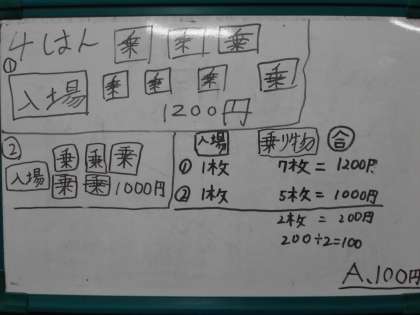 4はん 乗 乗 乗
①
入場 乗 乗 乗 乗
1200円
②
乗 乗 乗
入場 乗 乗 1000円
入場 乗り物 合
① 1枚 7枚=1200円
② 1枚 5枚=1000円
2枚=200円
200÷2=100
A.100円